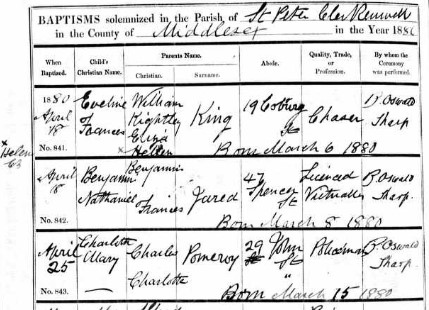 BAPTISMS solemnized in the Parish of St Peter Clerkenwell
in the County of Middlesex in the Year 1880
When Baptized. Child's Christian Name. Parents Name. Christian. Surname. Abode. Quality, Trade, or Profession. By whom the Ceremony was performed.
1880 April 18 Eveline Frances William Eliza Hellen King 19 Coburg St Chaser R Oswald Sharp
No. 841. Born March 6 1880
x Helen
April 8 Benjamin Nathaniel Benjamin Frances Jared 47 Spencer St Licenced Victualler R Oswald Sharp
No. 842. Born March 8 1880
April 25 Charlotte Mary Charles Charlotte Pomeroy 29 John St Policeman R Oswald Sharp
No. 843. Born March 15 1880